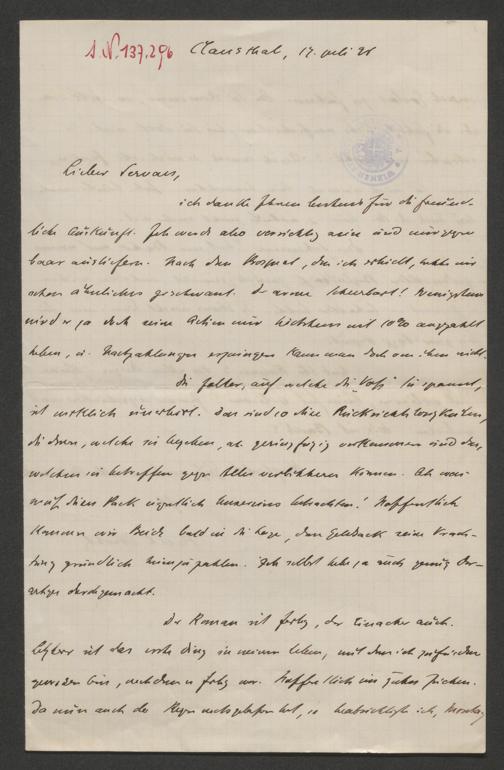 I.N. 137.296 Clausthal, 17. Juli
Lieber Servaes,
ich danke Ihnen bestens für die freund-
liche Auskunft. Ich werde also vorsichtig sein und nur gegen
baar ausliefern. Nach dem Prospect, den ich erhielt, hatte mir
schon ähnliches geschwant. Der arme Scheerbart! Wenigstens
wird er ja doch seine Actien nur höchstens mit 10% angezahlt
haben, u. Nachzahlungen erzwingen kann man doch von ihm nicht.
Die Folter, auf welche die "Voss" Sie spannt,
ist wirklich unerhört. Das sind so kleine Rücksichtslosigkeiten,
die denen, welche sie begehen, als geringfügig vorkommen und den,
welchen sie betreffen gegen Alles verbittern können. Als was
muß dieses Pack eigentlich unsereins betrachten! Hoffentlich
kommen wir Beide bald in die Lage, dem Geldsack seine Verach-
tung gründlich heimzuzahlen. Ich selbst habe ja auch genug Der-
artiges durchgemacht.
Der Roman ist fertig, der Einacter auch.
Letzterer ist das erste Ding in meinem Leben, mit dem ich zufrieden
gewesen bin, nachdem es fertig war. Hoffentlich ein gutes Zeichen.
Da nun auch der Regen nachgelassen hat, so beabsichtige ich, Montag